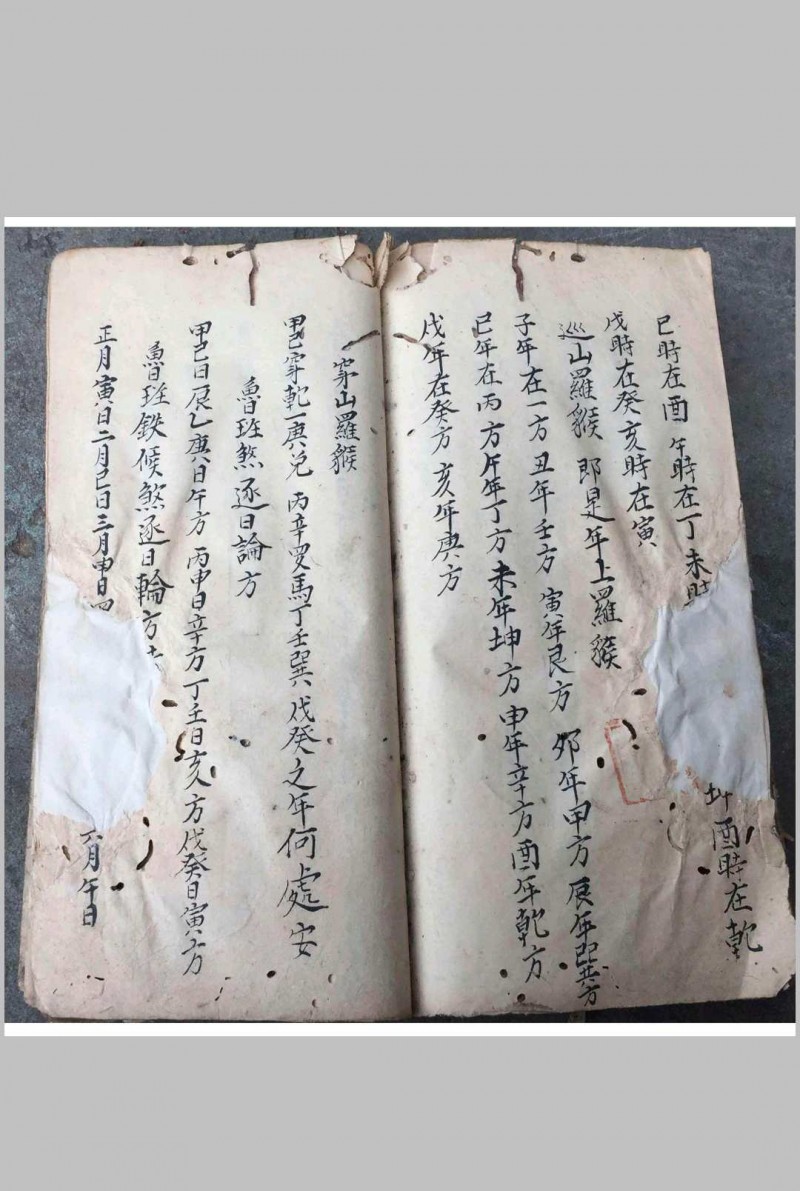 巳時在酉 午時在丁 未時 坤 酉時在乾
戌時在癸 亥時在寅
巡山羅猴 即是年上羅猴
子年在一方 丑年壬方 寅年艮方 夘年甲方 辰年巽方
巳年在丙方 午年丁方 未年坤方 申年辛方 酉年乾方
戌年在癸方 亥年庚方
穿山羅猴
甲己穿乾一庚兌 丙辛 馬丁壬巽戊癸之年何處安
魯班煞逐日論方
甲己日辰乙庚日午方 丙申日辛方丁壬日亥方戊癸日寅上方
魯班鉄候煞逐日輪方
正月寅日二月巳日三月申日四 六月午日